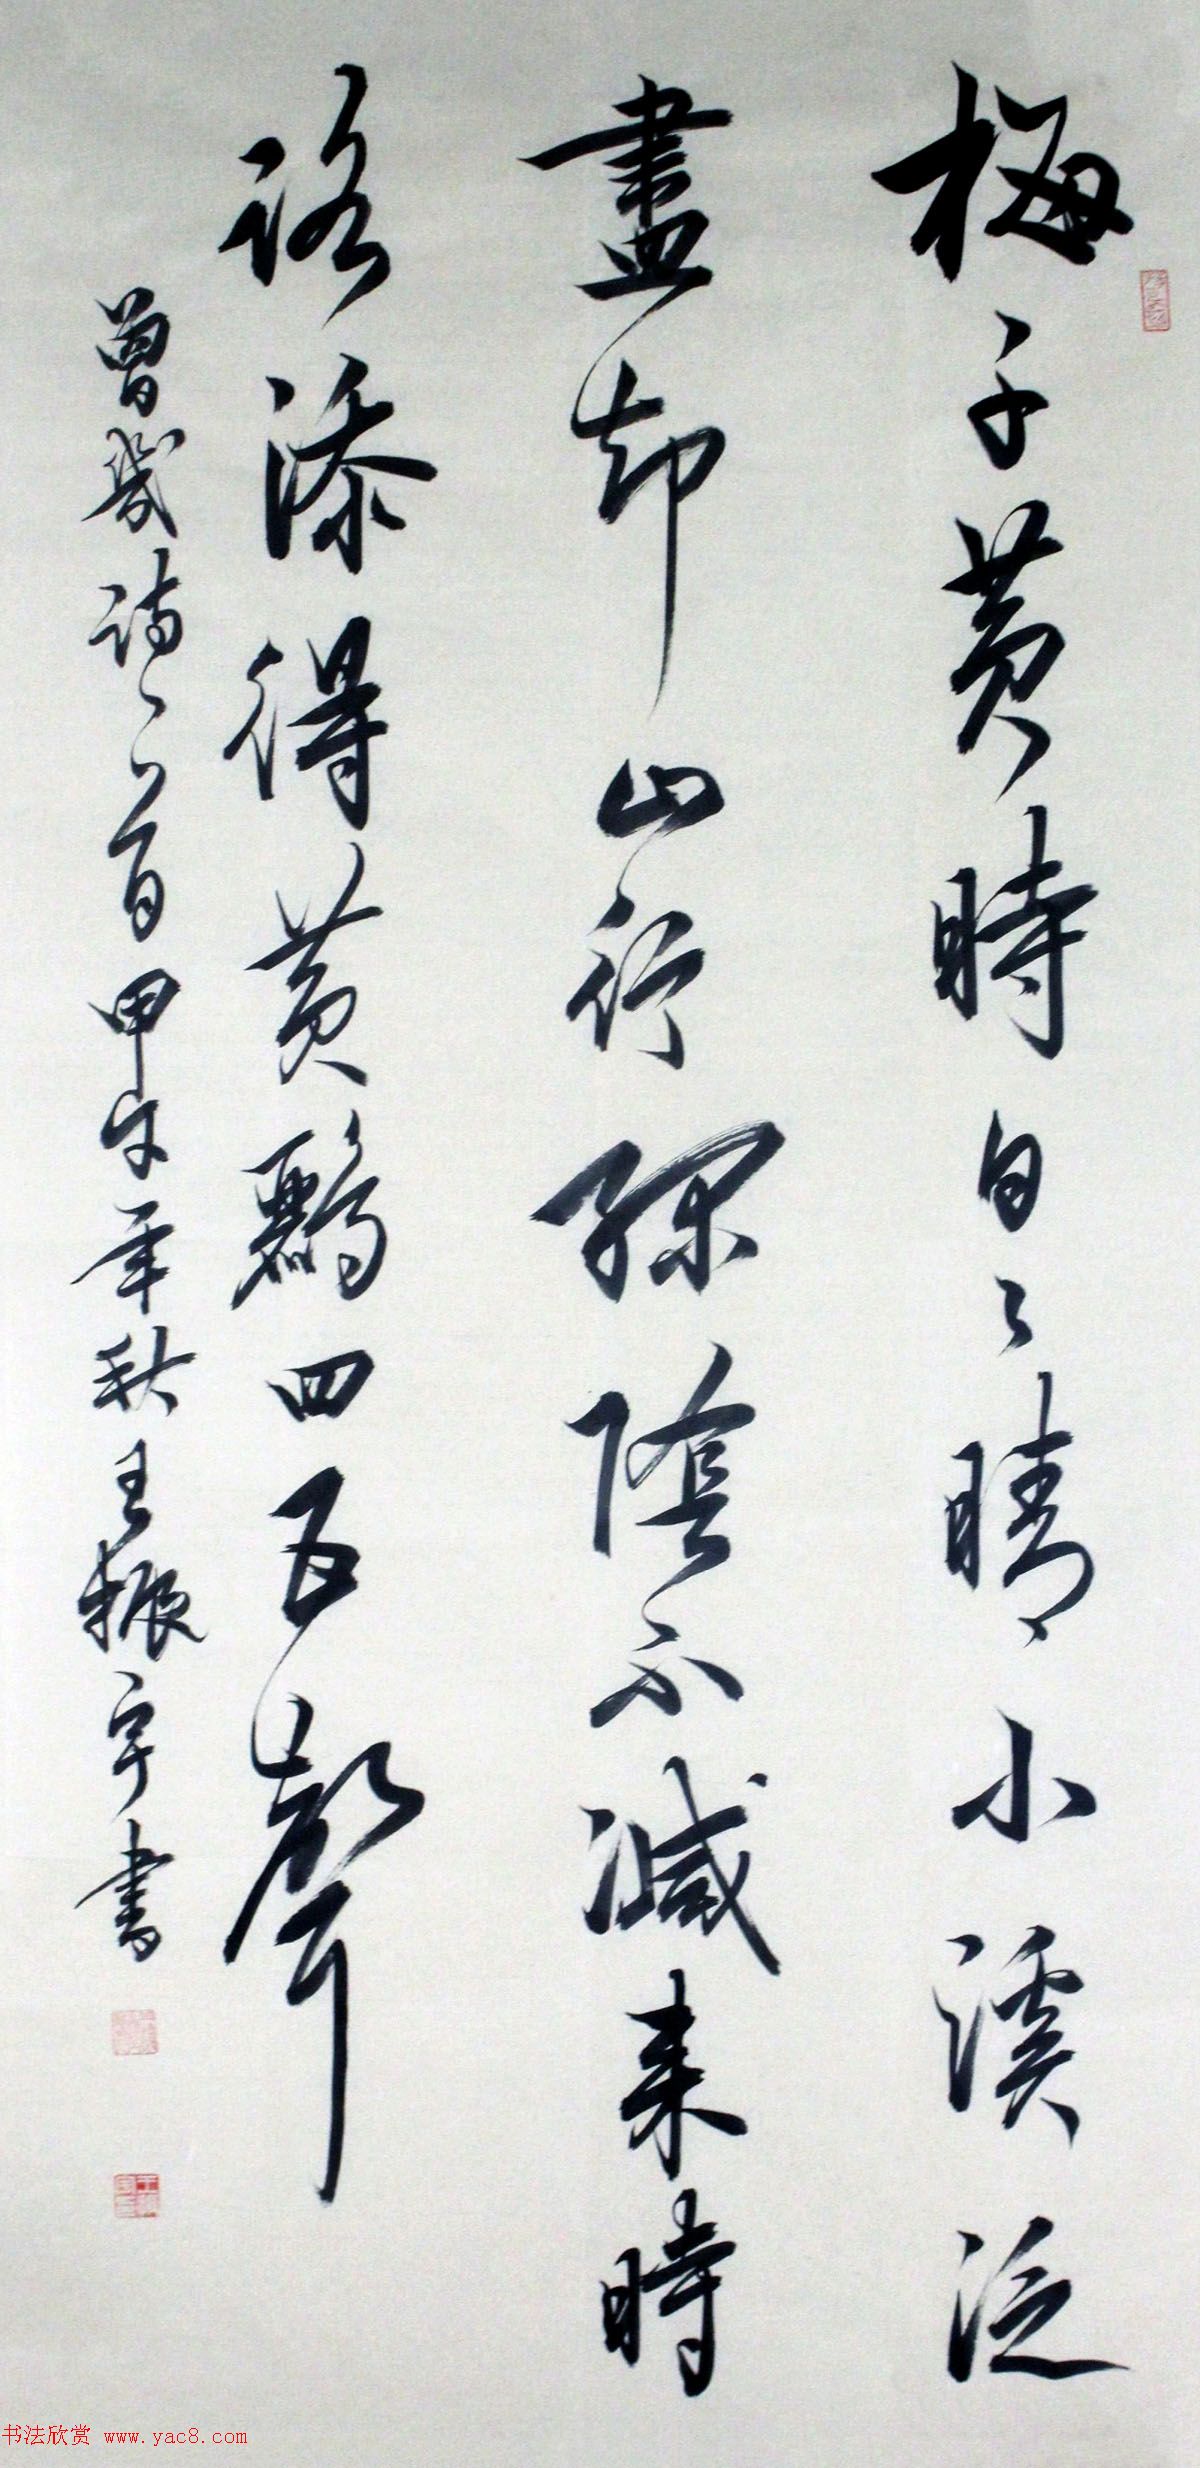 梅子黄時日々晴小溪泛
盡却山行绿陰不減来時
路添得黄鸝四五聲
曾幾詩一首甲午年秋王振宇書
书法欣赏 www.yac8.com